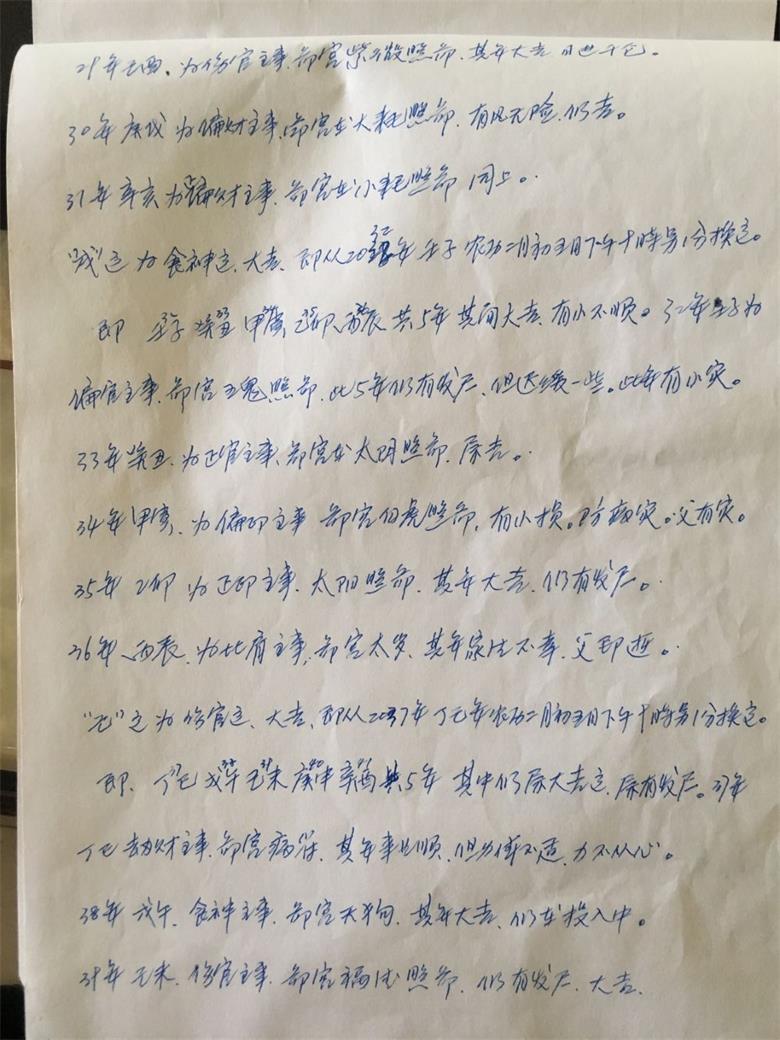 29年己酉、为伤官主事、命宫紫微照命、其年大吉
30年庚戌 为偏财主事、命宫大耗照命、有凶无险、仍吉。
31年辛亥 为偏财主事、命宫小耗照命 同上。
"戌"运 为食神运、大吉、即从2032年 壬子 农历二月初五日下午十时另1分换运。
即 壬子 癸丑 甲寅 乙卯 丙辰 共5年 其间大吉、有小不顺。32年壬子为
偏官主事、命宫五鬼照命、此5年仍有发展、但迟缓一些。此年有小灾。
33年癸丑、为正官主事、命宫太阴照命、属吉。
34年甲寅、为偏印主事 命宫白虎照命、有小损。防病灾。父有灾。
35年 乙卯 为正印主事、太阳照命、其年大吉、仍有发展。
36年、丙辰、为比肩主事、命宫太岁、其年家生不幸、父
"己"运 为伤官运、大吉、即从2037年丁巳年农历二月初五日下午十时另1分换运。
即、丁巳 戊午 己未 庚申 辛酉 共5年 其中仍属大吉运、属有发展。37年
丁巳 劫财主事、命宫病符、其年事业顺、但身体不适、力不从心。
38年 戊午、食神主事、命宫天狗、其年大吉、仍在投入中。
39年 己未、伤官主事、命宫福德照命、仍有发展、大吉、